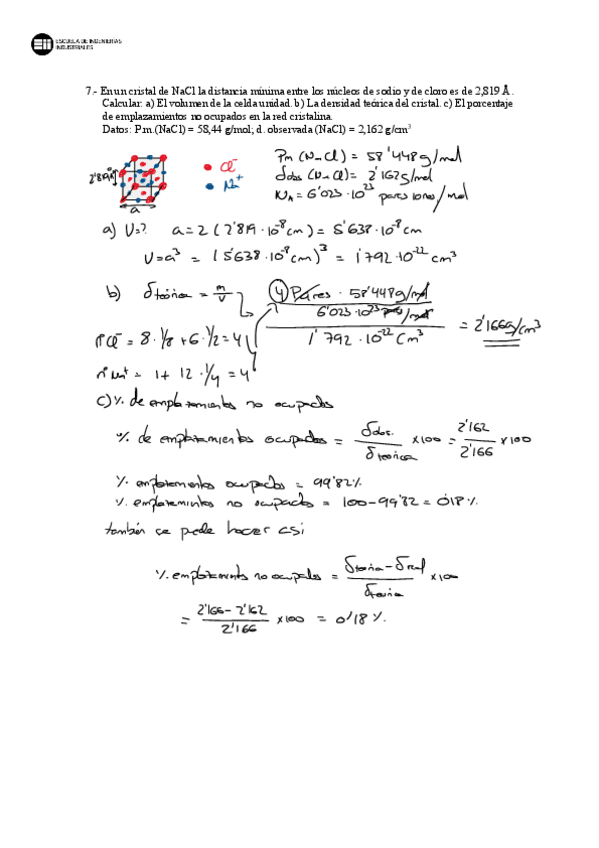 ESCUELA DE INGENIERÍAS
INDUSTRIALES
7.- En un cristal de NaCl la distancia mínima entre los núcleos de sodio y de cloro es de 2,819 Å.
Calcular: a) El volumen de la celda unidad. b) La densidad teórica del cristal. c) El porcentaje
de emplazamientos no ocupados en la red cristalina.
Datos: P.m.(NaCl) = 58,44 g/mol; d. observada (NaCl) = 2,162 g/cm³
2'819Å
a
Cl⁻
Na⁺
Pm (NaCl) = 58'448 g/mol
δobs (NaCl) = 2'162 g/mol
NA = 6'023 · 10²³ pares iones/mol
a) V=? a = 2 (2'819 · 10⁻⁸ cm) = 5'638 · 10⁻⁸ cm
V = a³ = (5'638 · 10⁻⁸ cm)³ = 1'792 · 10⁻²² cm³
b) δteórica = m/V
4 Pares · 58'448 g/mol
6'023 · 10²³ pares/mol
1'792 · 10⁻²² cm³
= 2'166 g/cm³
nºCl⁻ = 8 · 1/8 + 6 · 1/2 = 4
nºNa⁺ = 1 + 12 · 1/4 = 4
c) % de emplazamientos no ocupados
% de emplazamientos ocupados = δobs. / δteórica × 100 = 2'162 / 2'166 × 100
% emplazamientos ocupados = 99'82 %
% emplazamientos no ocupados = 100 - 99'82 = 0'18 %
también se puede hacer así
% emplazamiento no ocupados = δteórica - δreal / δteórica × 100
= 2'166 - 2'162 / 2'166 × 100 = 0'18 %